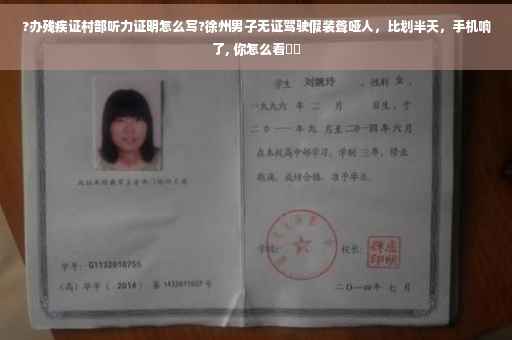 ?办残疾证村部听力证明怎么写?徐州男子无证驾驶假装聋哑人，比划半天，手机响
了, 你怎么看▯▯
学生 刘婉玲 ，性别 女 ，
一九九六 年 二 月 日生，于
二〇一一年九 月至二〇一四年 六 月
在本校高中部学习，学制 三年，修业
期满，成绩合格，准予毕业。
学校： 校长：
学号： G1132010755
（高）毕字（ 2014 ）第 1432011037 号
二〇一四年 七 月